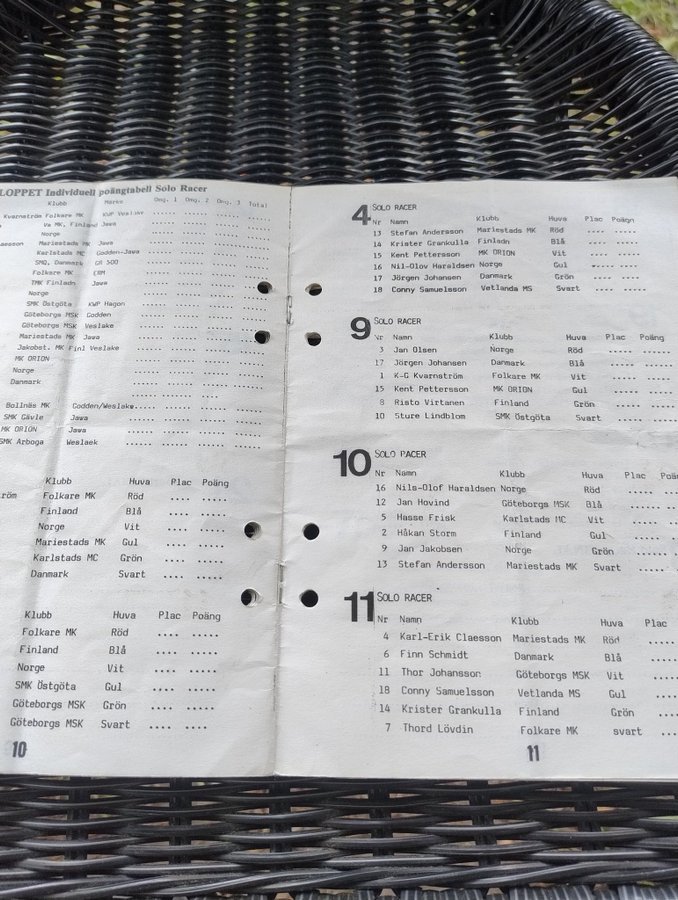 LOPPET Individuell poängtabell Solo Racer
Klubb Märke Omg. 1 Omg. 2 Omg. 3 Total
Kvarnström Folkare MK KWP Veslake
Va MK, Finland Jawa
Norge
aesson Mariestads MK Jawa
Karlstads MC Godden-Jawa
SMQ, Danmark GM 500
Folkare MK ERM
TMK Finladn Jawa
Norge
SMK Östgöta KWP Hagon
Göteborgs MSK Godden
Göteborgs MSK Veslake
Mariestads MK Jawa
Jakobst. MK Finl Veslake
MK ORION
Norge
Danmark
Bollnäs MK Godden/Weslake
SMK Gävle Jawa
MK ORION Jawa
SMK Arboga Weslaek
Klubb Huva Plac Poäng
röm Folkare MK Röd
Finland Blå
Norge Vit
Mariestads MK Gul
Karlstads MC Grön
Danmark Svart
Klubb Huva Plac Poäng
Folkare MK Röd
Finland Blå
Norge Vit
SMK Östgöta Gul
Göteborgs MSK Grön
Göteborgs MSK Svart
10
4 SOLO RACER
Nr Namn Klubb Huva Plac Poäng
13 Stefan Andersson Mariestads MK Röd
14 Krister Grankulla Finladn Blå
15 Kent Pettersson MK ORION Vit
16 Nil-Olov Haraldsen Norge Gul
17 Jörgen Johansen Danmark Grön
18 Conny Samuelsson Vetlanda MS Svart
9 SOLO RACER
Nr Namn Klubb Huva Plac Poäng
3 Jan Olsen Norge Röd
17 Jörgen Johansen Danmark Blå
1 K-G Kvarnström Folkare MK Vit
15 Kent Pettersson MK ORION Gul
8 Risto Virtanen Finland Grön
10 Sture Lindblom SMK Östgöta Svart
10 SOLO RACER
Nr Namn Klubb Huva Plac Poän
16 Nils-Olof Haraldsen Norge Röd
12 Jan Hovind Göteborgs MSK Blå
5 Hasse Frisk Karlstads MC Vit
2 Håkan Storm Finland Gul
9 Jan Jakobsen Norge Grön
13 Stefan Andersson Mariestads MK Svart
11 SOLO RACER
Nr Namn Klubb Huva Plac
4 Karl-Erik Claesson Mariestads MK Röd
6 Finn Schmidt Danmark Blå
11 Thor Johansson Göteborgs MSK Vit
18 Conny Samuelsson Vetlanda MS Gul
14 Krister Grankulla Finland Grön
7 Thord Lövdin Folkare MK svart
11